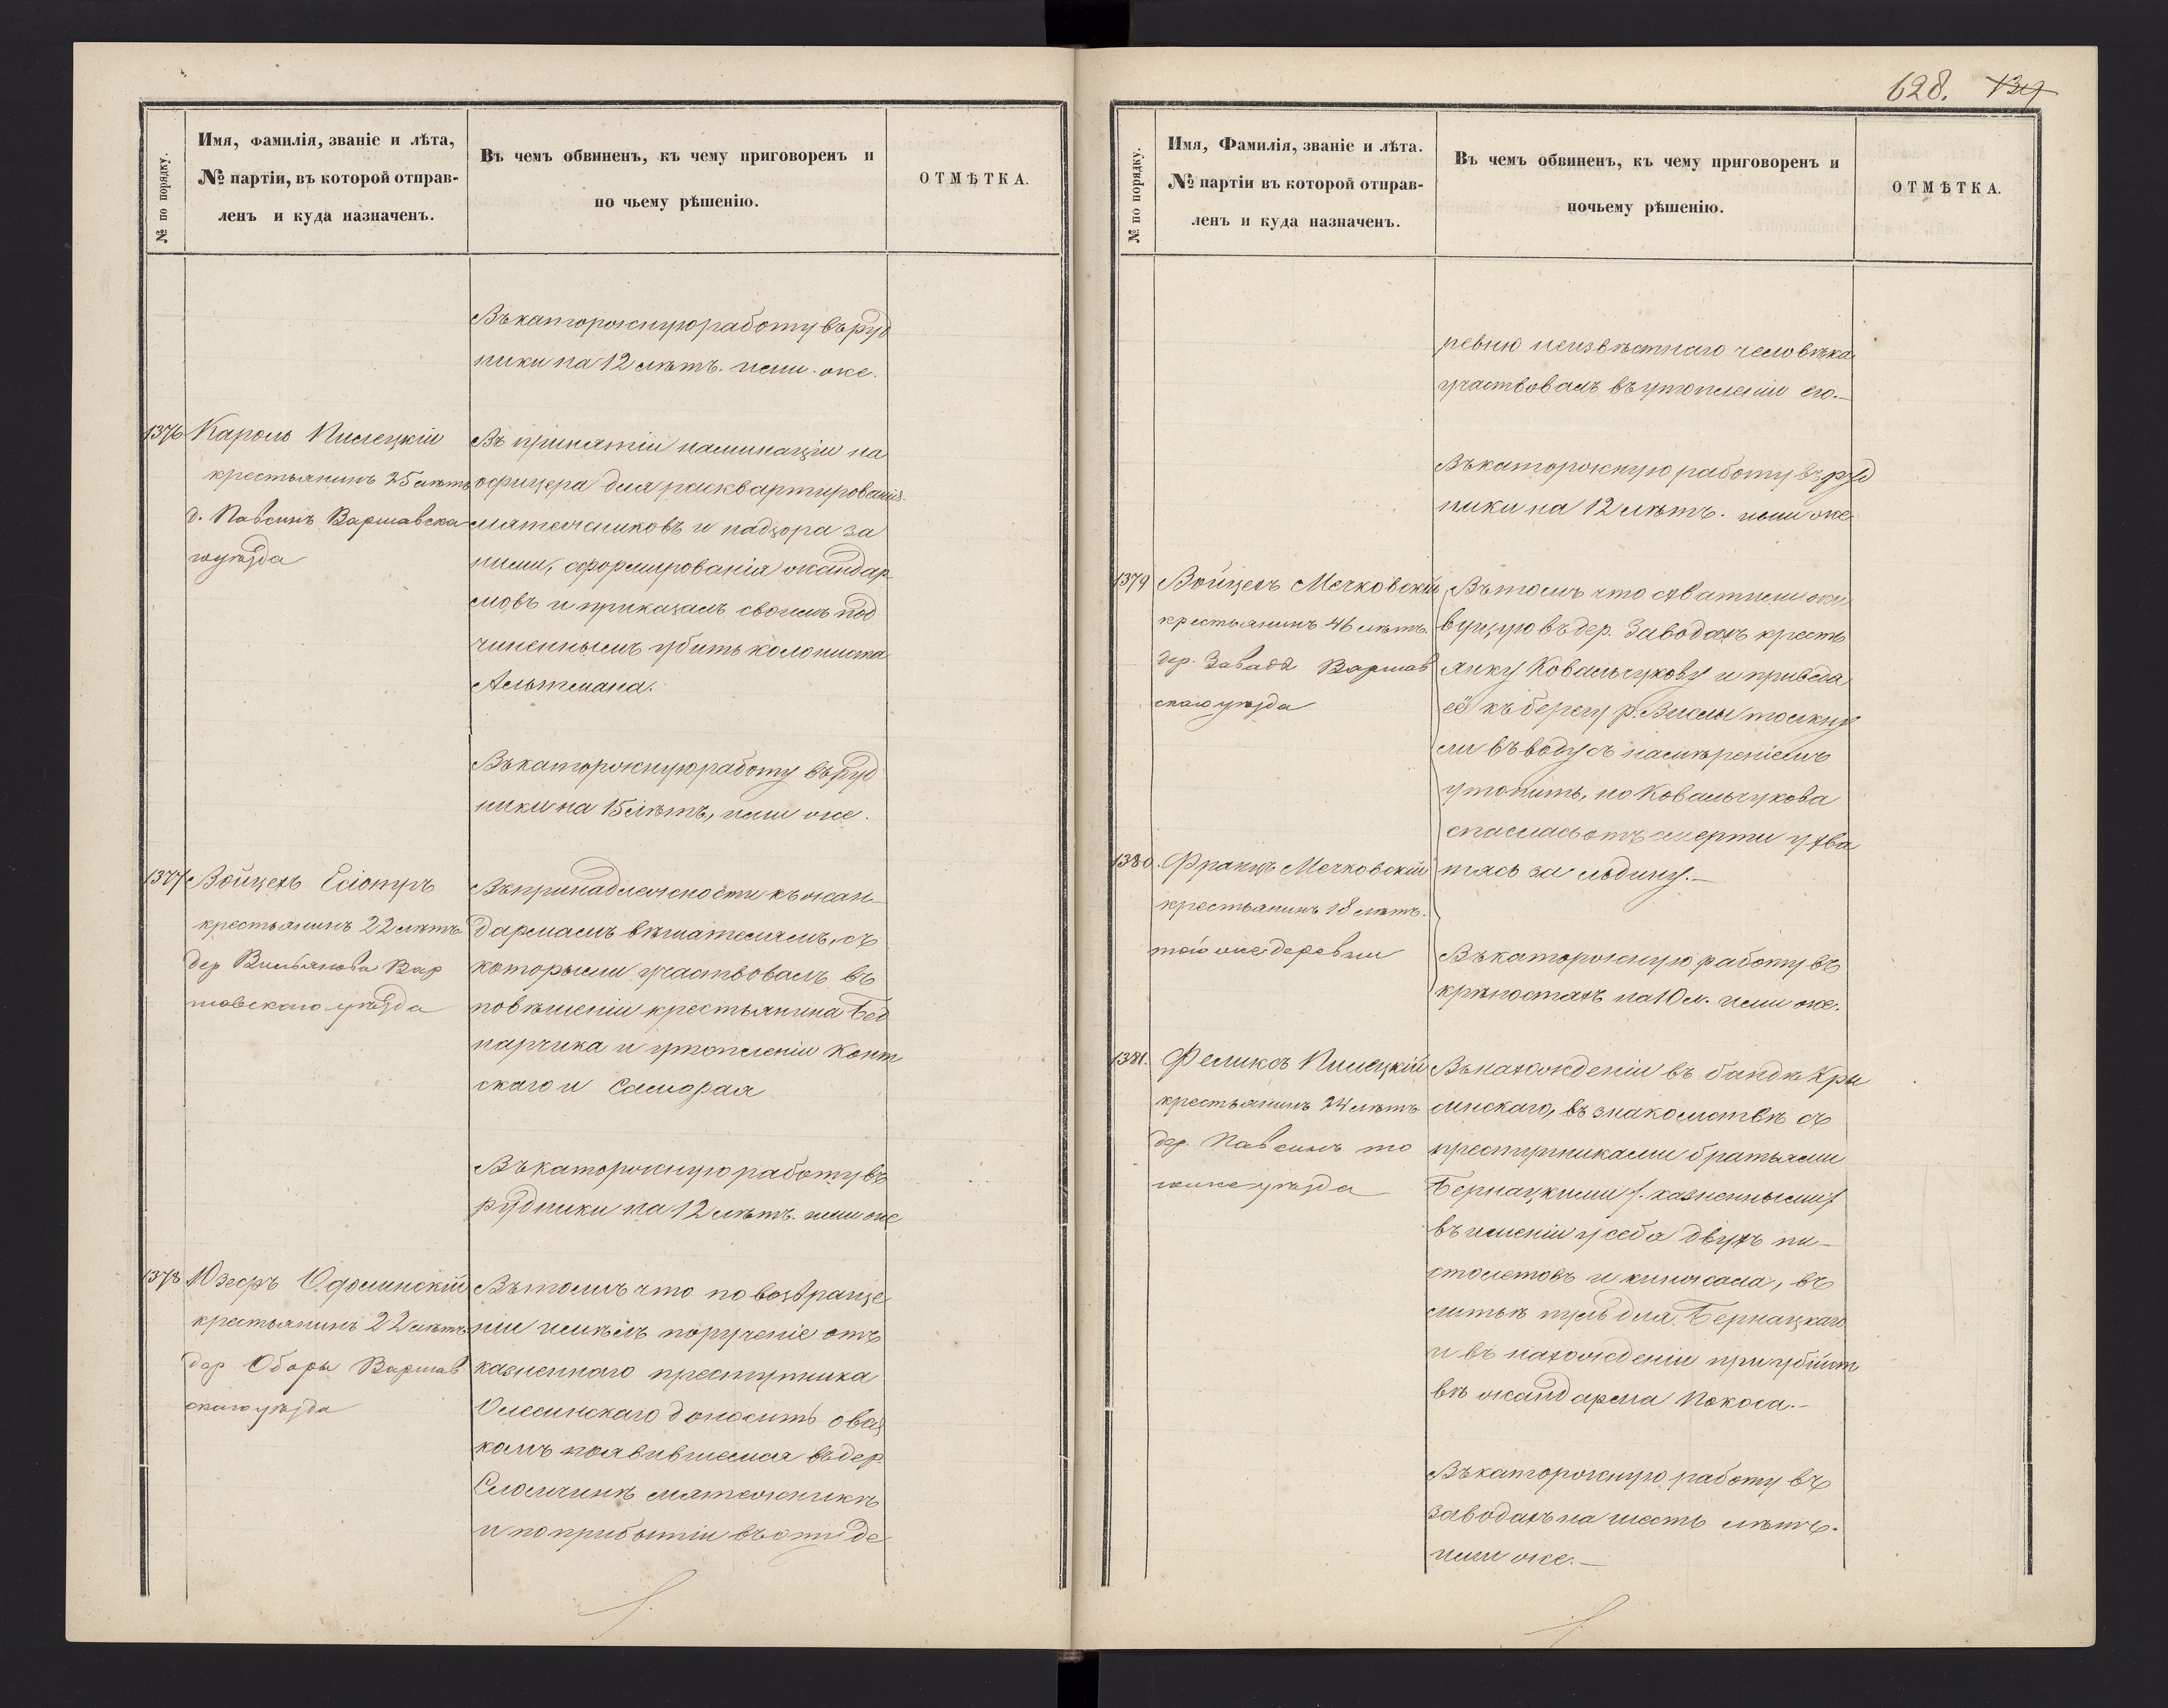 № по порядку.
Имя, фамилія, званіе и лѣта,
№ партіи, въ которой отправ-
ленъ и куда назначенъ.
Въ чемъ обвиненъ, къ чему приговоренъ и
по чьему рѣшенію.
ОТМѢТКА.
Въ каторожную работу въ руд
ники на 12 лѣтъ. имъ же.
1376 Кароль Пилецкій
крестьянинъ 25 лѣтъ
д. Павсинъ Варшавска
го уѣзда
Въ принятіи наминаціи на
офицера для расквартированія
мятежниковъ и надзора за
ними, сформированія жандар
мовъ и приказалъ своимъ под
чиненнымъ убить колониста
Альтмана.
Въ каторожную работу въ руд
ники на 15 лѣтъ, ими же.
1377 Войцехъ Есіотръ
крестьянинъ 22 лѣтъ
дер Вильянова Вар
шавскаго уѣзда
Въ принадлежности къ жан-
дармамъ вѣшателямъ, съ
которыми участвовалъ въ
повѣшеніи крестьянина Бед
нарчика и утопленіи Конт
скаго и Саморая
Въ каторожную работу въ
рудники на 12 лѣтъ. ими же
1378 Юзефъ Оломинскій
крестьянинъ 22 лѣтъ
дер Оборы Варшав
скаго уѣзда
Въ томъ что по возвраще
ніи имѣлъ порученіе отъ
казненнаго преступника
Олесинскаго доносить о вся
комъ появившемся въ дер.
Сломчинѣ мятежникѣ
и по прибытіи въ эти де
628. 139
№ по порядку.
Имя, Фамилія, званіе и лѣта.
№ партіи въ которой отправ-
ленъ и куда назначенъ.
Въ чемъ обвиненъ, къ чему приговоренъ и
почьему рѣшенію.
ОТМѢТКА.
ревню неизвѣстнаго человѣка
участвовалъ въ утопленіи его.-
Въ каторожную работу въ руд
ники на 12 лѣтъ. ими же
1379 Войцехъ Мечковскій
крестьянинъ 46 лѣтъ.
дер. Завадъ Варшав
скаго уѣзда
Въ томъ что схватили жи
вущую въ дер. Заводахъ кресть
янку Ковальчукову и приведя
её къ берегу р. Вислы толкну
ли въ воду съ намѣреніемъ
утопить, но Ковальчукова
спаслась отъ смерти ухва
тясь за льдину.-
1380. Францъ Мечковскій
крестьянинъ 18 лѣтъ.
той же деревни
Въ каторожную работу въ
крѣпостяхъ на 10 л. ими же.
1381. Феликсъ Пилецкій
крестьянинъ 24 лѣтъ
дер. Павсинъ то
гоже уѣзда
Въ нахожденіи въ бандѣ Кры
минскаго, въ знакомствѣ съ
преступниками братьями
Бернацкими /. казненными ./
въ имѣніи у себя двухъ пи-
столетовъ и кинжала, въ
литьѣ пуль для Бернацкаго
и въ нахожденіи при убійст
вѣ жандарма Покоса.-
Въ каторожную работу въ
заводахъ на шесть лѣтъ.
ими же.-